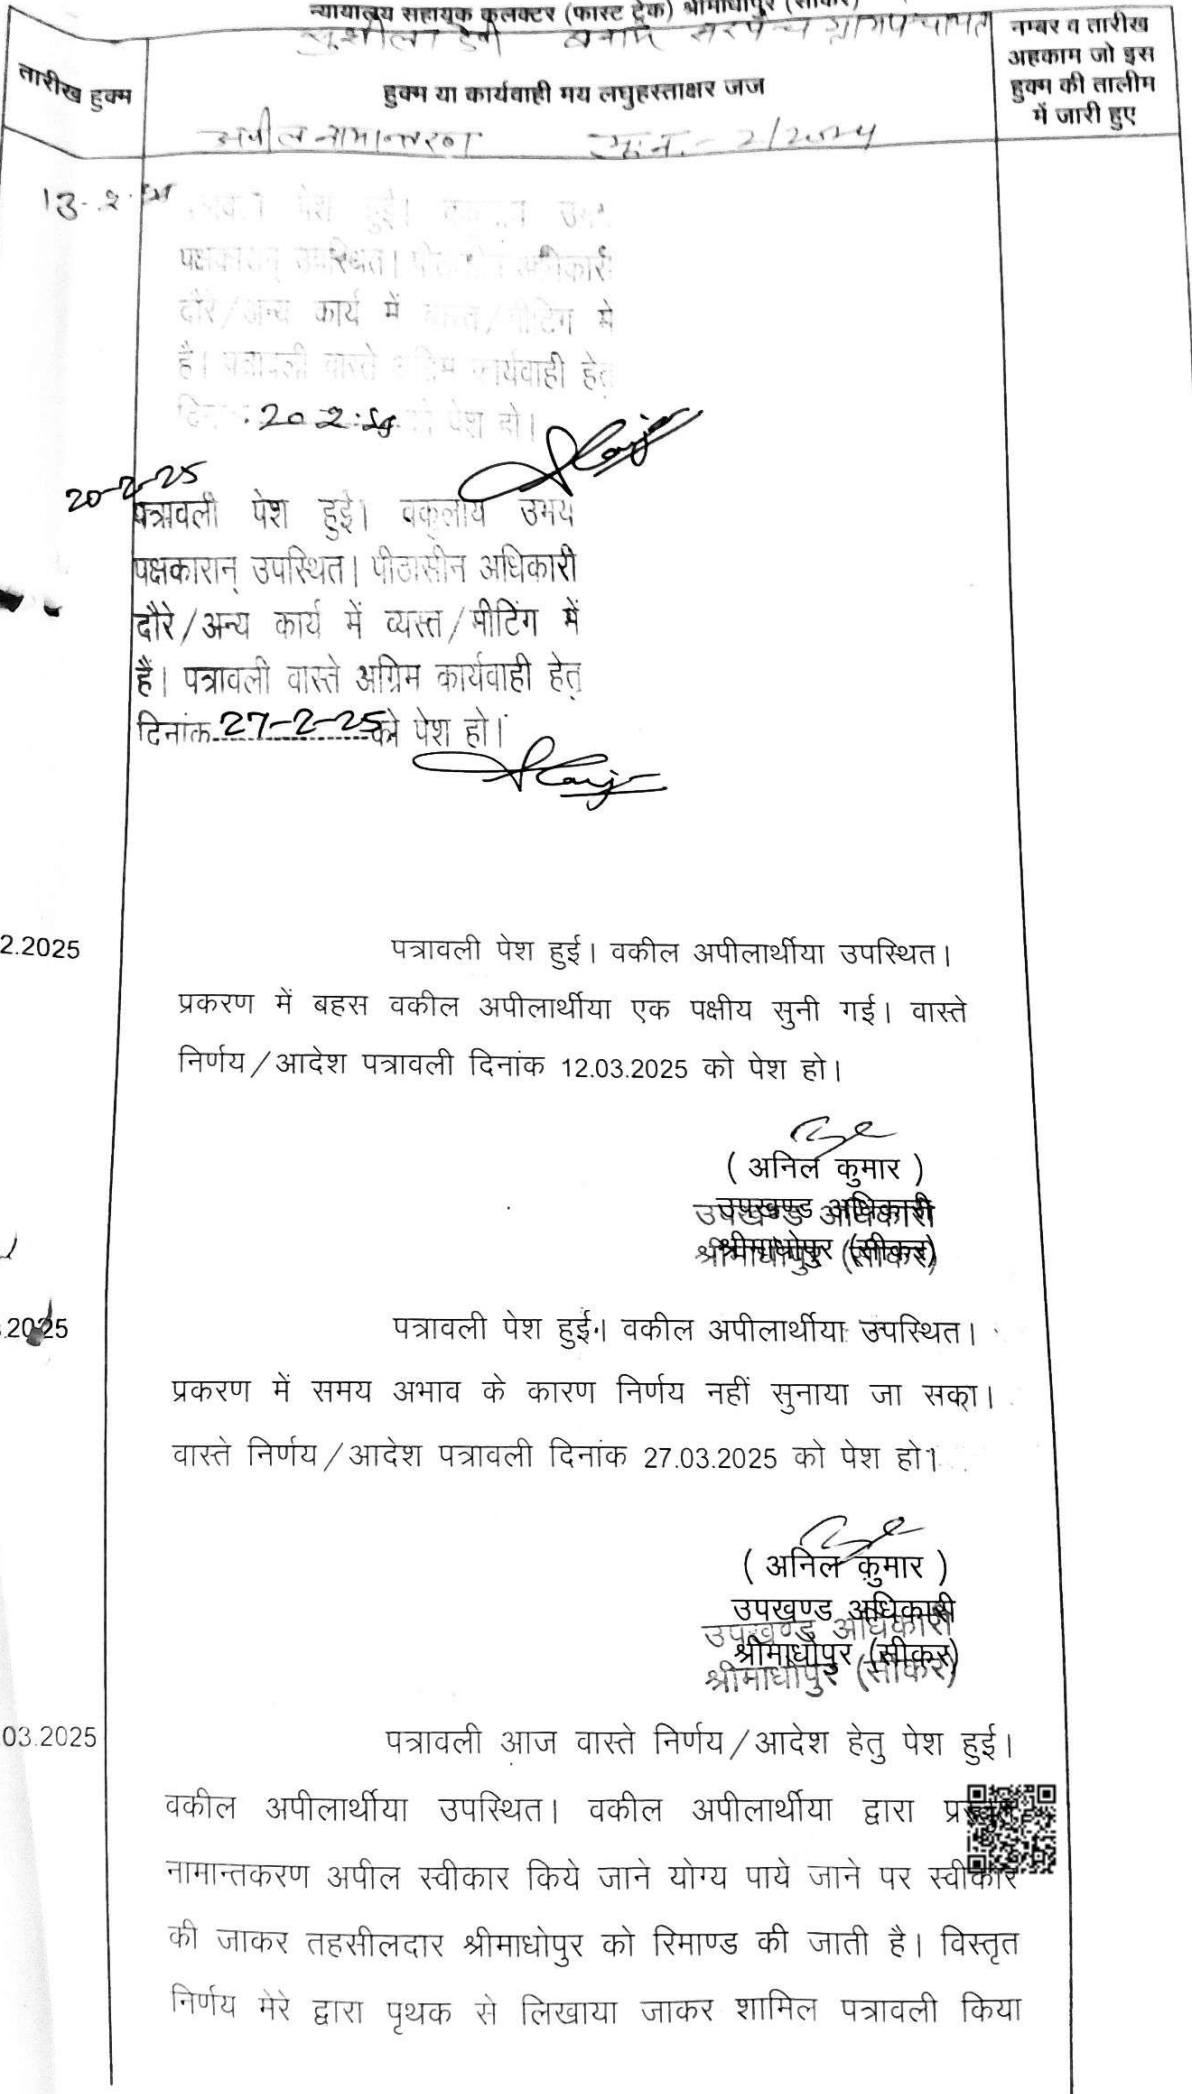 न्यायालय सहायक कलक्टर (फास्ट ट्रेक) श्रीमाधोपुर (सीकर)
सुशीला देवी बनाम सरपंच ग्रामपंचायत
तारीख हुक्म
हुक्म या कार्यवाही मय लघुहस्ताक्षर जज
नम्बर व तारीख
अहकाम जो इस
हुक्म की तालीम
में जारी हुए
अपील नामान्तरण मु.न.- 2/2024
13.2.25
पेश हुई।
पक्षकारान् उपस्थित। अधिकारी
दौरे/अन्य कार्य में व्यस्त/मीटिंग में
है। पत्रावली वास्ते अग्रिम कार्यवाही हेतु
20.2.25 को पेश हो।
20-2-25
पत्रावली पेश हुई। वकूलाय उभय
पक्षकारान् उपस्थित। पीठासीन अधिकारी
दौरे/अन्य कार्य में व्यस्त/मीटिंग में
हैं। पत्रावली वास्ते अग्रिम कार्यवाही हेतु
दिनांक 27-2-25 को पेश हो।
2.2025
पत्रावली पेश हुई। वकील अपीलार्थीया उपस्थित।
प्रकरण में बहस वकील अपीलार्थीया एक पक्षीय सुनी गई। वास्ते
निर्णय/आदेश पत्रावली दिनांक 12.03.2025 को पेश हो।
( अनिल कुमार )
उपखण्ड अधिकारी
उपखण्ड अधिकारी
श्रीमाधोपुर (सीकर)
श्रीमाधोपुर (सीकर)
.2025
पत्रावली पेश हुई। वकील अपीलार्थीया उपस्थित।
प्रकरण में समय अभाव के कारण निर्णय नहीं सुनाया जा सका।
वास्ते निर्णय/आदेश पत्रावली दिनांक 27.03.2025 को पेश हो।
( अनिल कुमार )
उपखण्ड अधिकारी
उपखण्ड अधिकारी
श्रीमाधोपुर (सीकर)
श्रीमाधोपुर (सीकर)
03.2025
पत्रावली आज वास्ते निर्णय/आदेश हेतु पेश हुई।
वकील अपीलार्थीया उपस्थित। वकील अपीलार्थीया द्वारा प्रस्तुत
नामान्तकरण अपील स्वीकार किये जाने योग्य पाये जाने पर स्वीकार
की जाकर तहसीलदार श्रीमाधोपुर को रिमाण्ड की जाती है। विस्तृत
निर्णय मेरे द्वारा पृथक से लिखाया जाकर शामिल पत्रावली किया